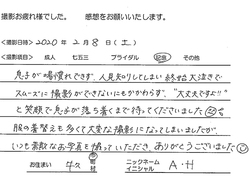 撮影お疲れ様でした。　感想をお願いいたします。
<撮影日時> 2020 年 2 月 8 日 ( 土 )
<撮影項目> 成人　七五三　ブライダル　記念　その他
息子が場慣れできず、人見知りしてしまい終始大泣きで
スムーズに撮影ができないにもかかわらず、"大丈夫ですよ!!"
と笑顔で息子が落ち着くまで待ってくださいました
服の着替えも多くて大変な撮影になってしまいましたが、
いつも素敵なお写真を撮っていただき、ありがとうございました
お住まい 牛久 市 町 村　ニックネーム イニシャル A・H